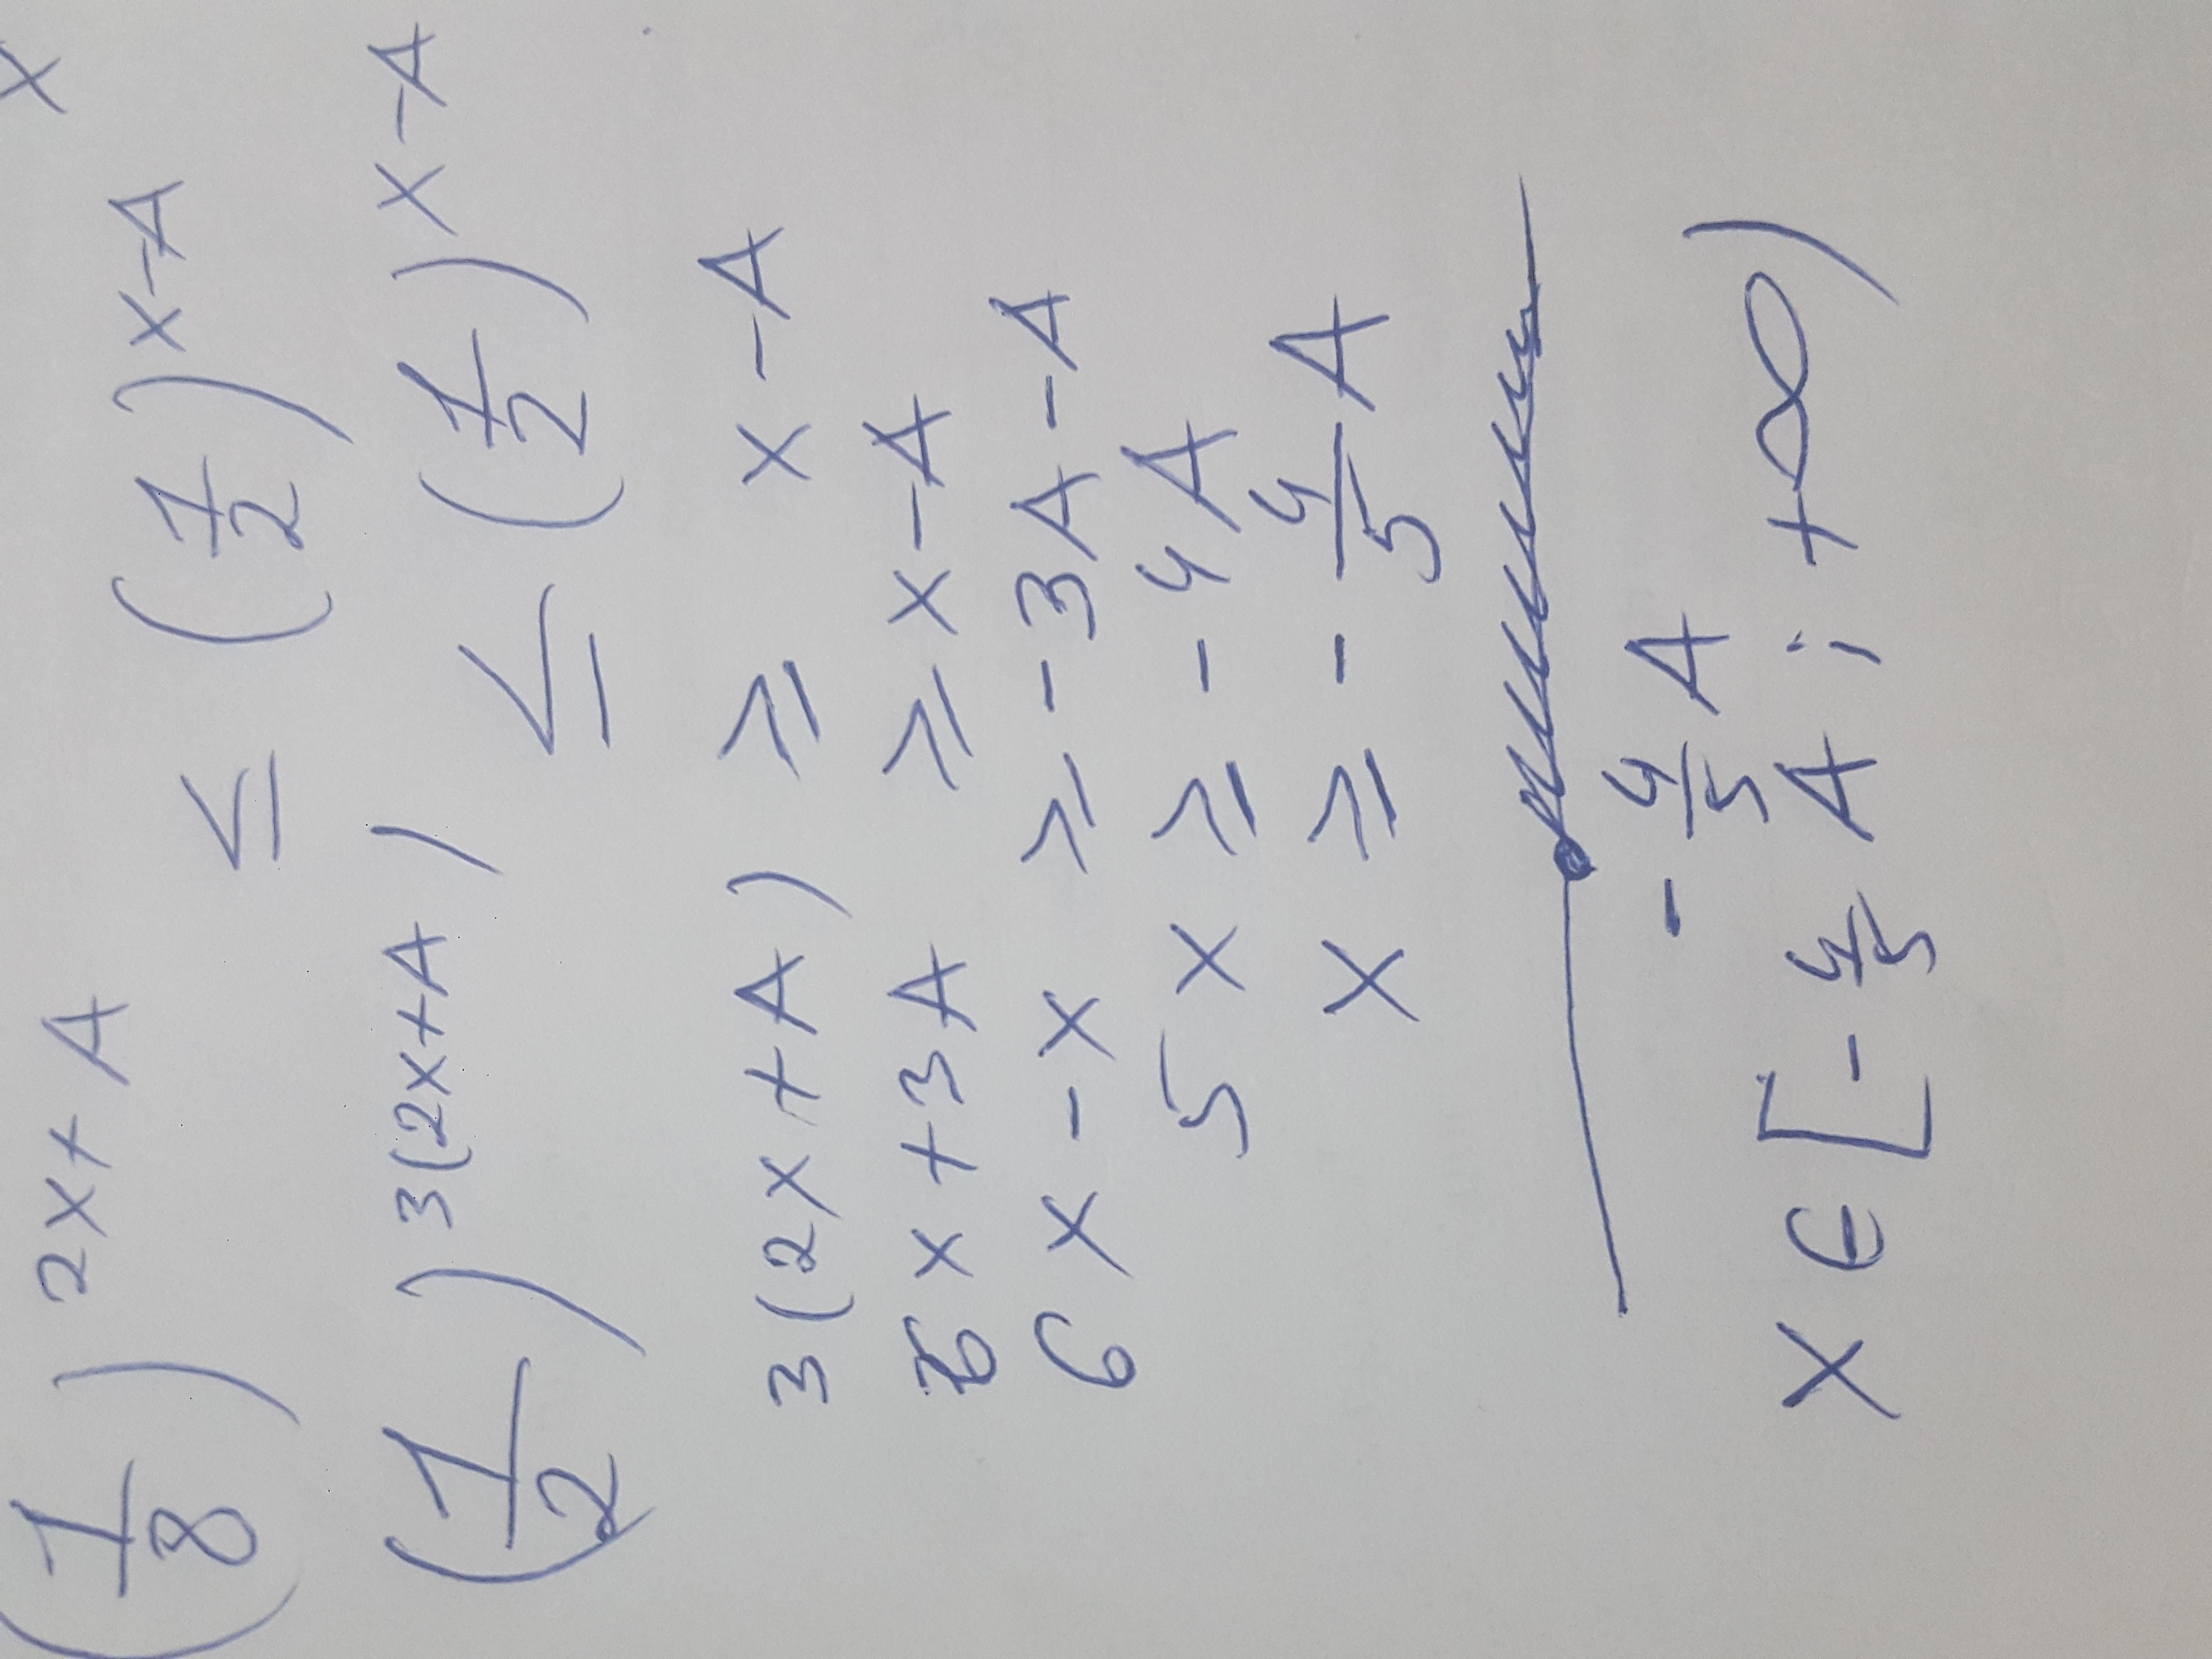 x
(1/8)^2x+A ≤ (1/2)^x-A
(1/2)^3(2x+A) ≤ (1/2)^x-A
3(2x+A) ≥ x-A
6x+3A ≥ x-A
6x-x ≥ -3A-A
5x ≥ -4A
x ≥ -4/5A
-4/5A
x∈[-4/5A;+∞)